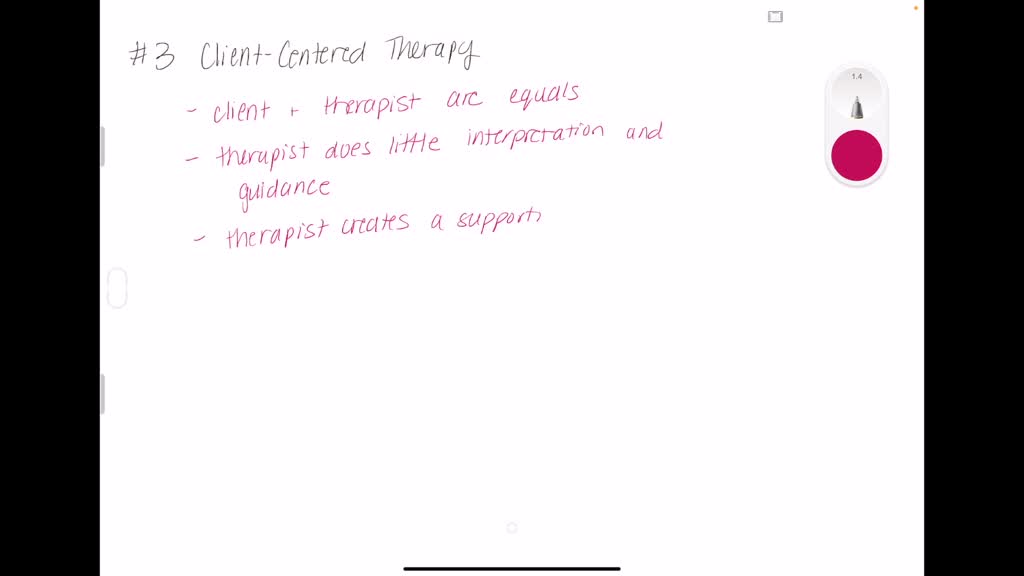 #3 Client-Centered Therapy
- client + therapist are equals
- therapist does little interpretation and
guidance
- therapist creates a supporti
1.4